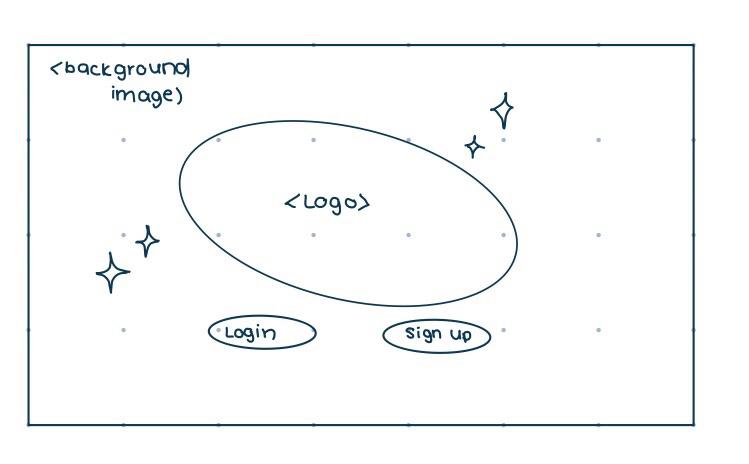 <background
image)
<Logo>
Login
Sign up